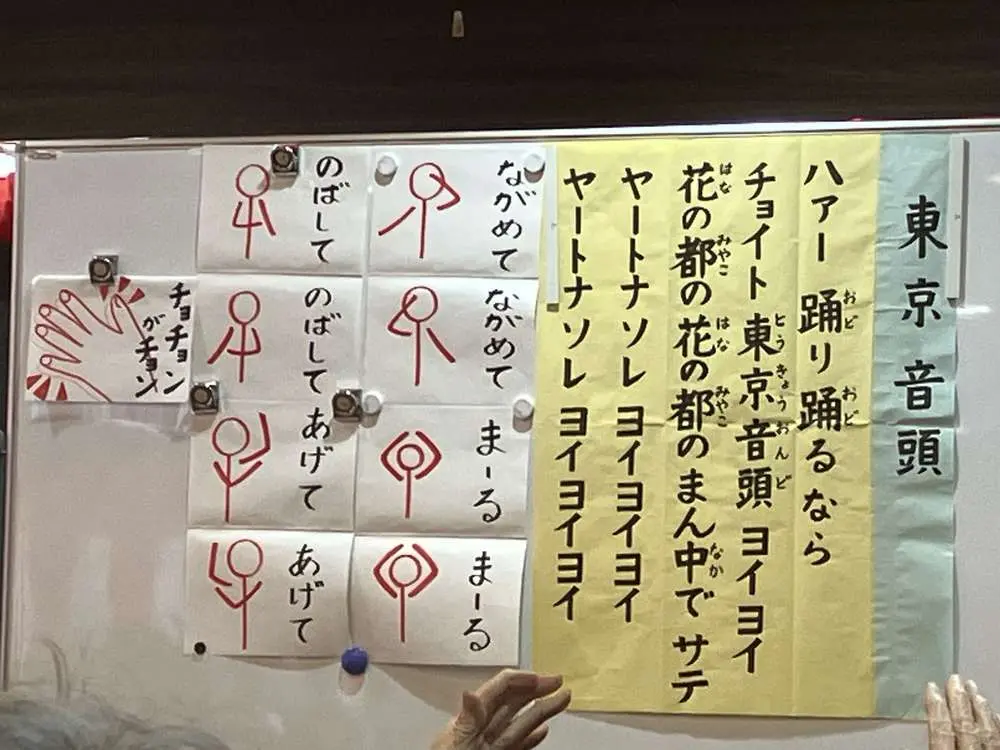 東京音頭
ハァー 踊り踊るなら
チョイト 東京音頭 ヨイヨイ
花の都の 花の都の まん中で サテ
ヤートナ ソレ ヨイヨイヨイ
ヤートナ ソレ ヨイヨイヨイ
ながめて
ながめて
まーる
まーる
のばして
のばして
あげて
あげて
チョチョン
が
チョン